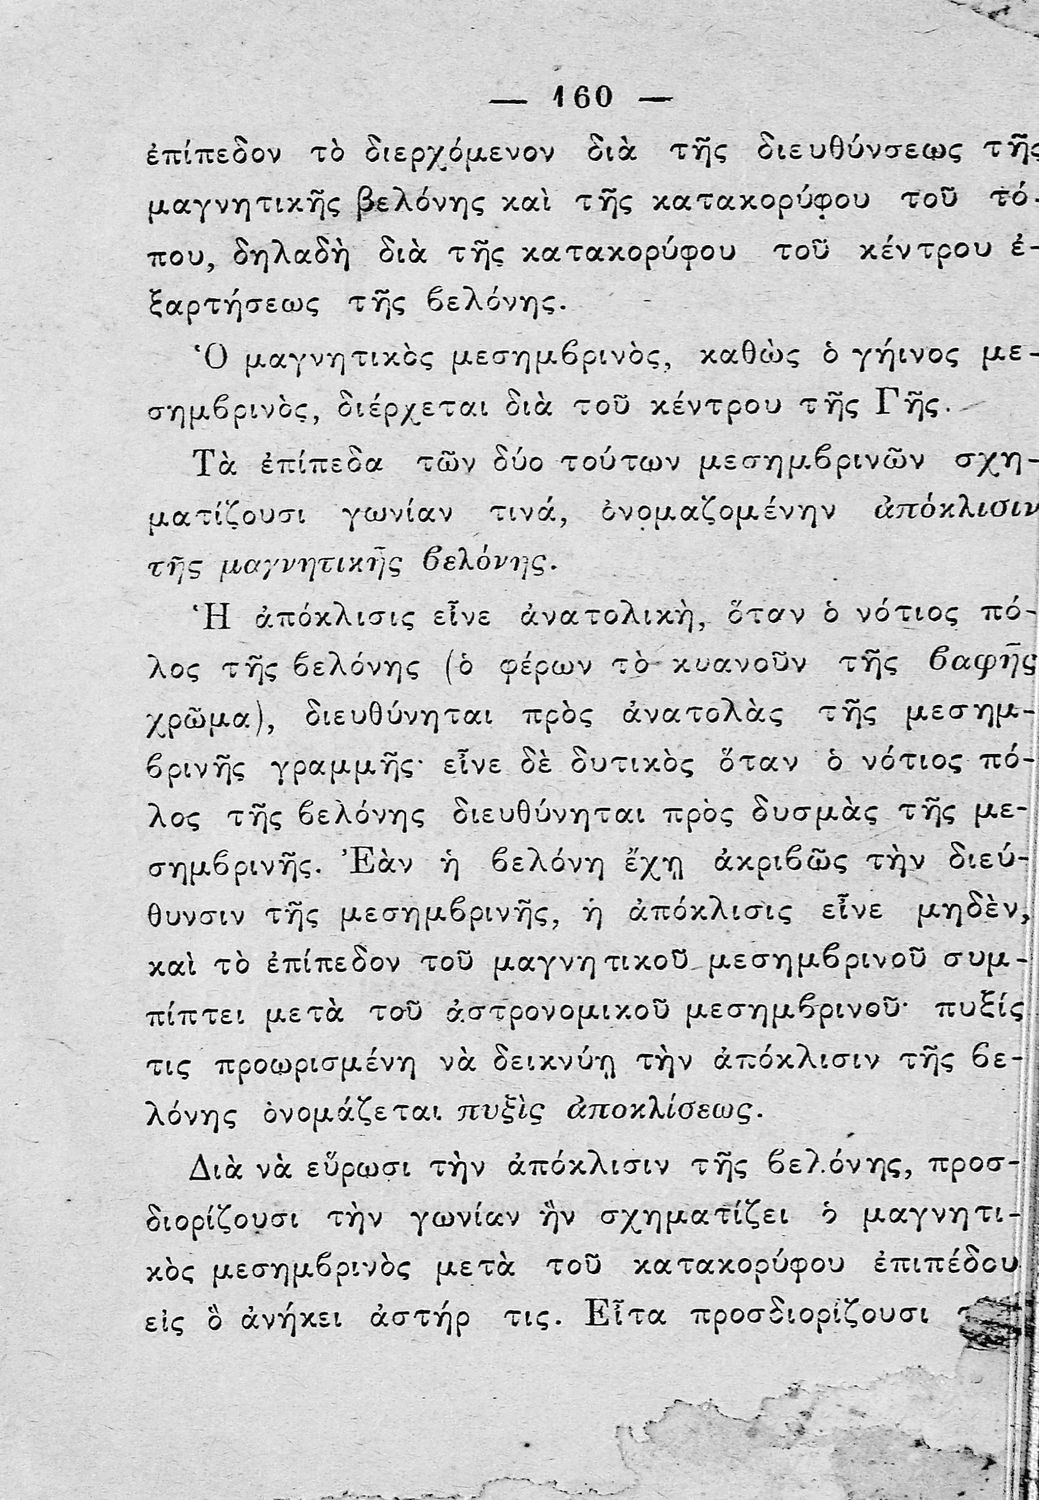 — 160 —
ἐπίπεδον τὸ διερχόμενον διὰ τῆς διευθύνσεως τῆς
μαγνητικῆς βελόνης καὶ τῆς κατακορύφου τοῦ τό-
που, δηλαδὴ διὰ τῆς κατακορύφου τοῦ κέντρου ἐ-
ξαρτήσεως τῆς βελόνης.
Ὁ μαγνητικὸς μεσημβρινὸς, καθὼς ὁ γήινος με-
σημβρινὸς, διέρχεται διὰ τοῦ κέντρου τῆς Γῆς.
Τὰ ἐπίπεδα τῶν δύο τούτων μεσημβρινῶν σχη-
ματίζουσι γωνίαν τινά, ὀνομαζομένην ἀπόκλισιν
τῆς μαγνητικῆς βελόνης.
Ἡ ἀπόκλισις εἶνε ἀνατολικὴ, ὅταν ὁ νότιος πό-
λος τῆς βελόνης (ὁ φέρων τὸ κυανοῦν τῆς βαφῆς
χρῶμα), διευθύνηται πρὸς ἀνατολὰς τῆς μεσημ-
βρινῆς γραμμῆς· εἶνε δὲ δυτικὸς ὅταν ὁ νότιος πό-
λος τῆς βελόνης διευθύνηται πρὸς δυσμὰς τῆς με-
σημβρινῆς. Ἐὰν ἡ βελόνη ἔχῃ ἀκριβῶς τὴν διεύ-
θυνσιν τῆς μεσημβρινῆς, ἡ ἀπόκλισις εἶνε μηδὲν,
καὶ τὸ ἐπίπεδον τοῦ μαγνητικοῦ μεσημβρινοῦ συμ-
πίπτει μετὰ τοῦ ἀστρονομικοῦ μεσημβρινοῦ· πυξίς
τις προωρισμένη νὰ δεικνύῃ τὴν ἀπόκλισιν τῆς βε-
λόνης ὀνομάζεται πυξὶς ἀποκλίσεως.
Διὰ νὰ εὕρωσι τὴν ἀπόκλισιν τῆς βελόνης, προσ-
διορίζουσι τὴν γωνίαν ἣν σχηματίζει ὁ μαγνητι-
κὸς μεσημβρινὸς μετὰ τοῦ κατακορύφου ἐπιπέδου
εἰς ὃ ἀνήκει ἀστήρ τις. Εἶτα προσδιορίζουσι